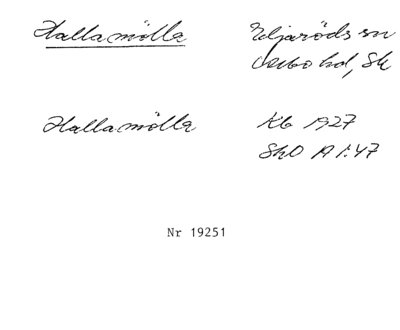 Hallamölla Eljaröds sn
Albo hd, Sk
Hallamölla Kb 1927
SkO A 1:47
Nr 19251